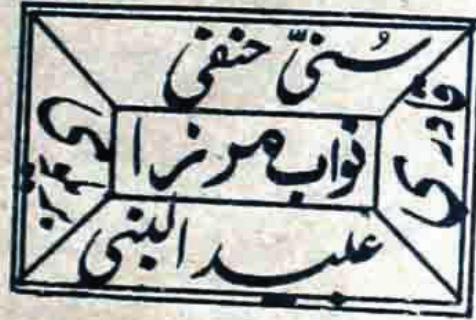 سُنّی حنفی
قادری
نواب مرزا
عبد النبی